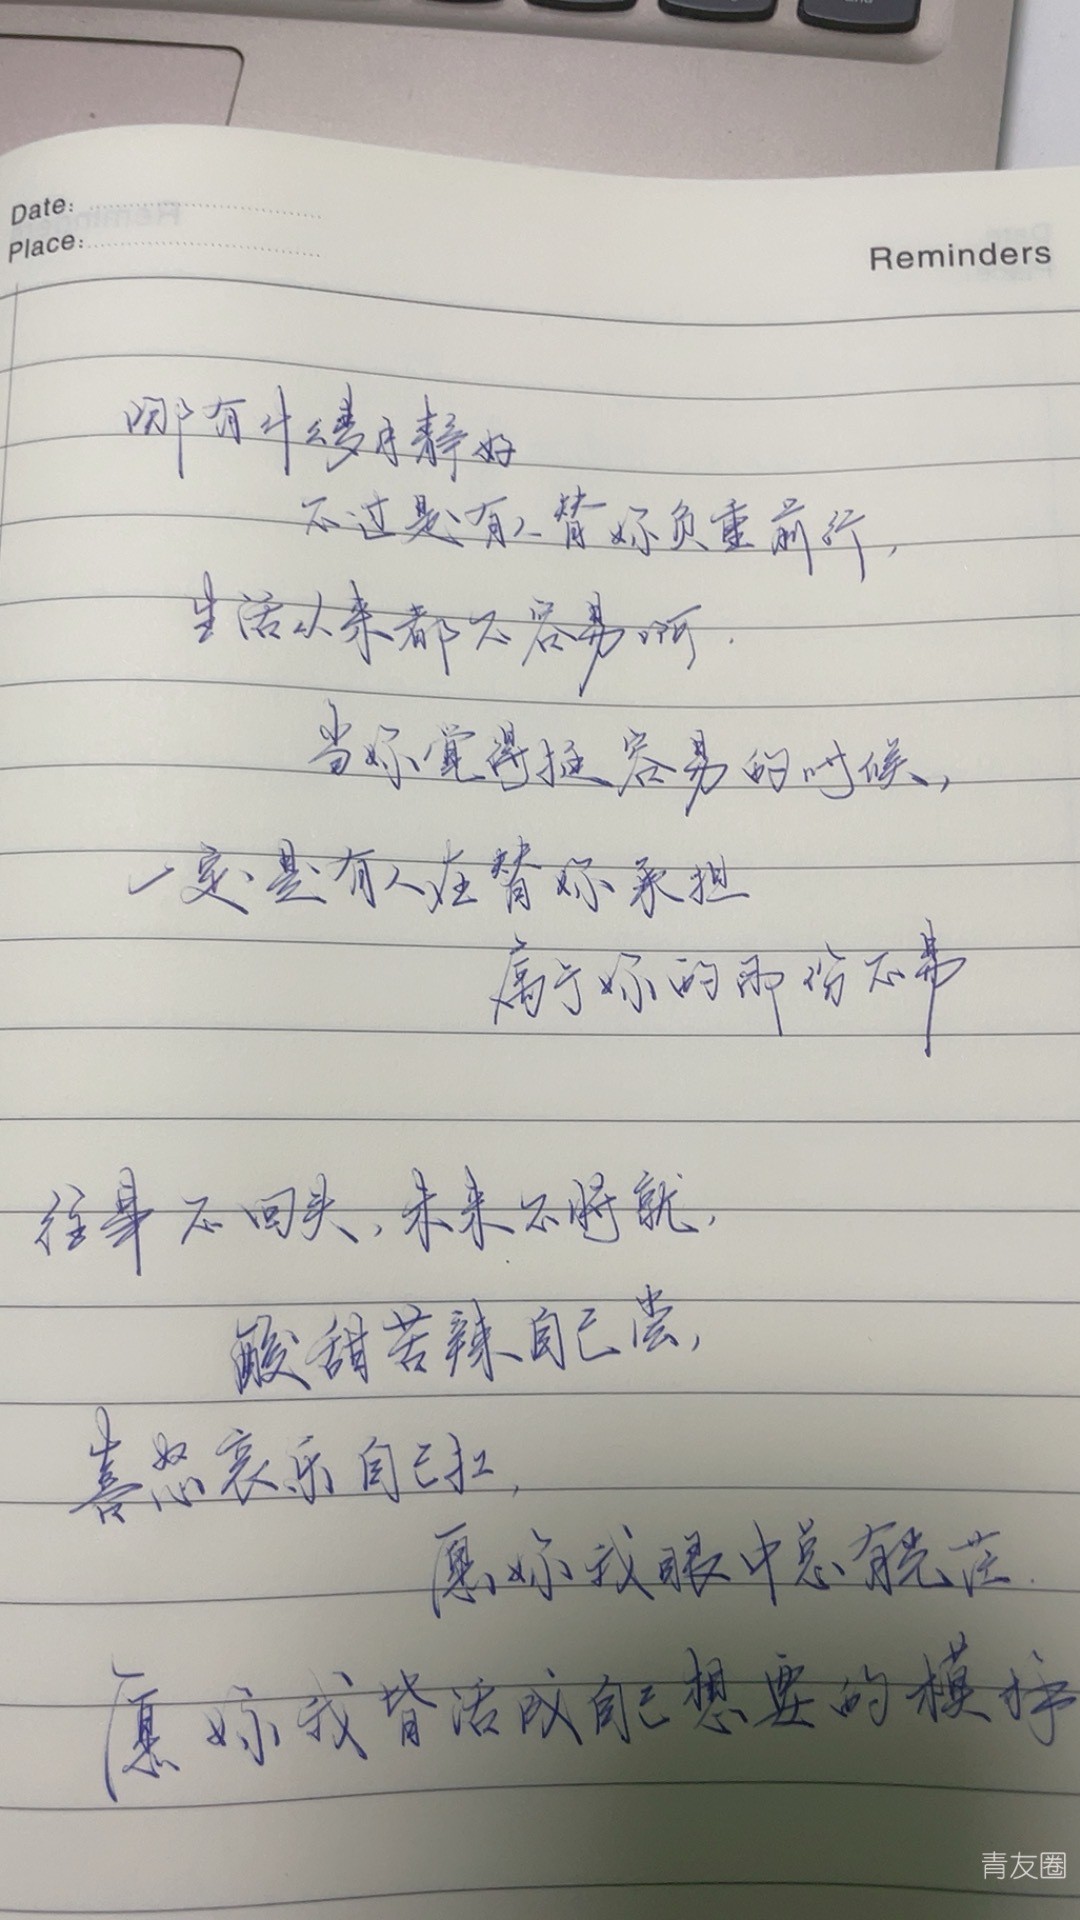 Date:
Place:
Reminders
哪有什么岁月静好
不过是有人替妳负重前行，
生活从来都不容易啊.
当妳觉得挺容易的时候，
一定是有人在替妳承担
属于妳的那份不易
往事不回头，未来不将就，
酸甜苦辣自己尝，
喜怒哀乐自己扛，
愿妳我眼中总有光茫.
愿妳我皆活成自己想要的模样
青友圈